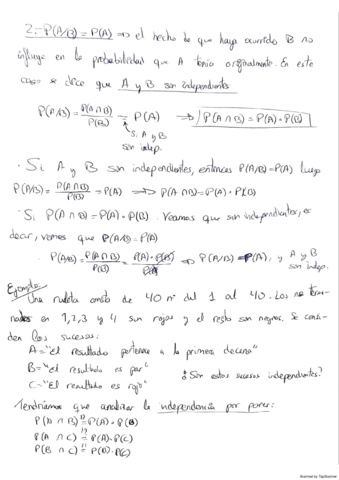 2.- P(A/B) = P(A) => el hecho de que haya ocurrido B no
influye en la probabilidad que A tenía originalmente. En este
caso se dice que A y B son independientes
P(A/B) = P(A∩B)/P(B) = P(A) => P(A∩B) = P(A)·P(B)
Si A y B
son indep.
· Si A y B son independientes, entonces P(A/B) = P(A) luego
P(A/B) = P(A∩B)/P(B) = P(A) => P(A∩B) = P(A)·P(B)
· Si P(A∩B) = P(A)·P(B). Veamos que son independientes, es
decir, veamos que P(A/B) = P(A)
· P(A/B) = P(A∩B)/P(B) = P(A)·P(B)/P(B) => P(A/B) = P(A), y A y B
son indep.
Ejemplo:
Una ruleta consta de 40 nº del 1 al 40. Los no termi-
nados en 1, 2, 3 y 4 son rojos y el resto son negros. Se consi-
den los sucesos:
A = "El resultado pertenece a la primera decena"
B = "El resultado es par"
¿Son estos sucesos independientes?
C = "El resultado es rojo"
Tendríamos que analizar la independencia por pares:
P(A∩B) ?= P(A)·P(B)
P(A∩C) ?= P(A)·P(C)
P(B∩C) ?= P(B)·P(C)
Scanned by TapScanner